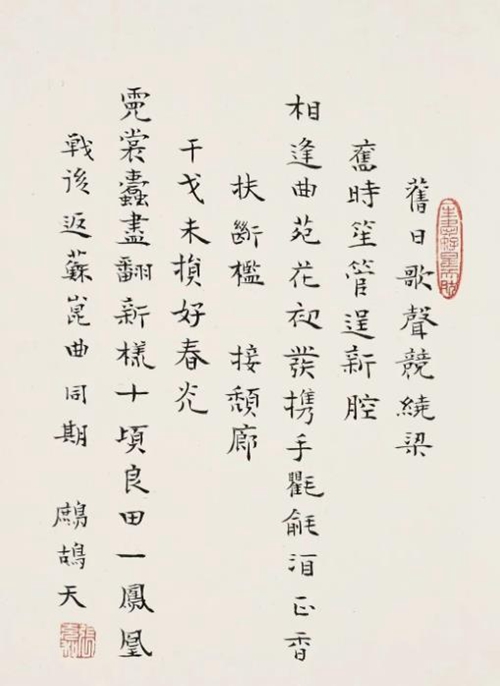 舊日歌聲競繞梁
舊時笙管逞新腔
相逢曲苑花初發携手氍毹酒正香
扶斷檻 接頹廊
干戈未損好春光
霓裳蠹盡翻新樣十頃良田一鳳凰
戰後返蘇崑曲同期 鷓鴣天